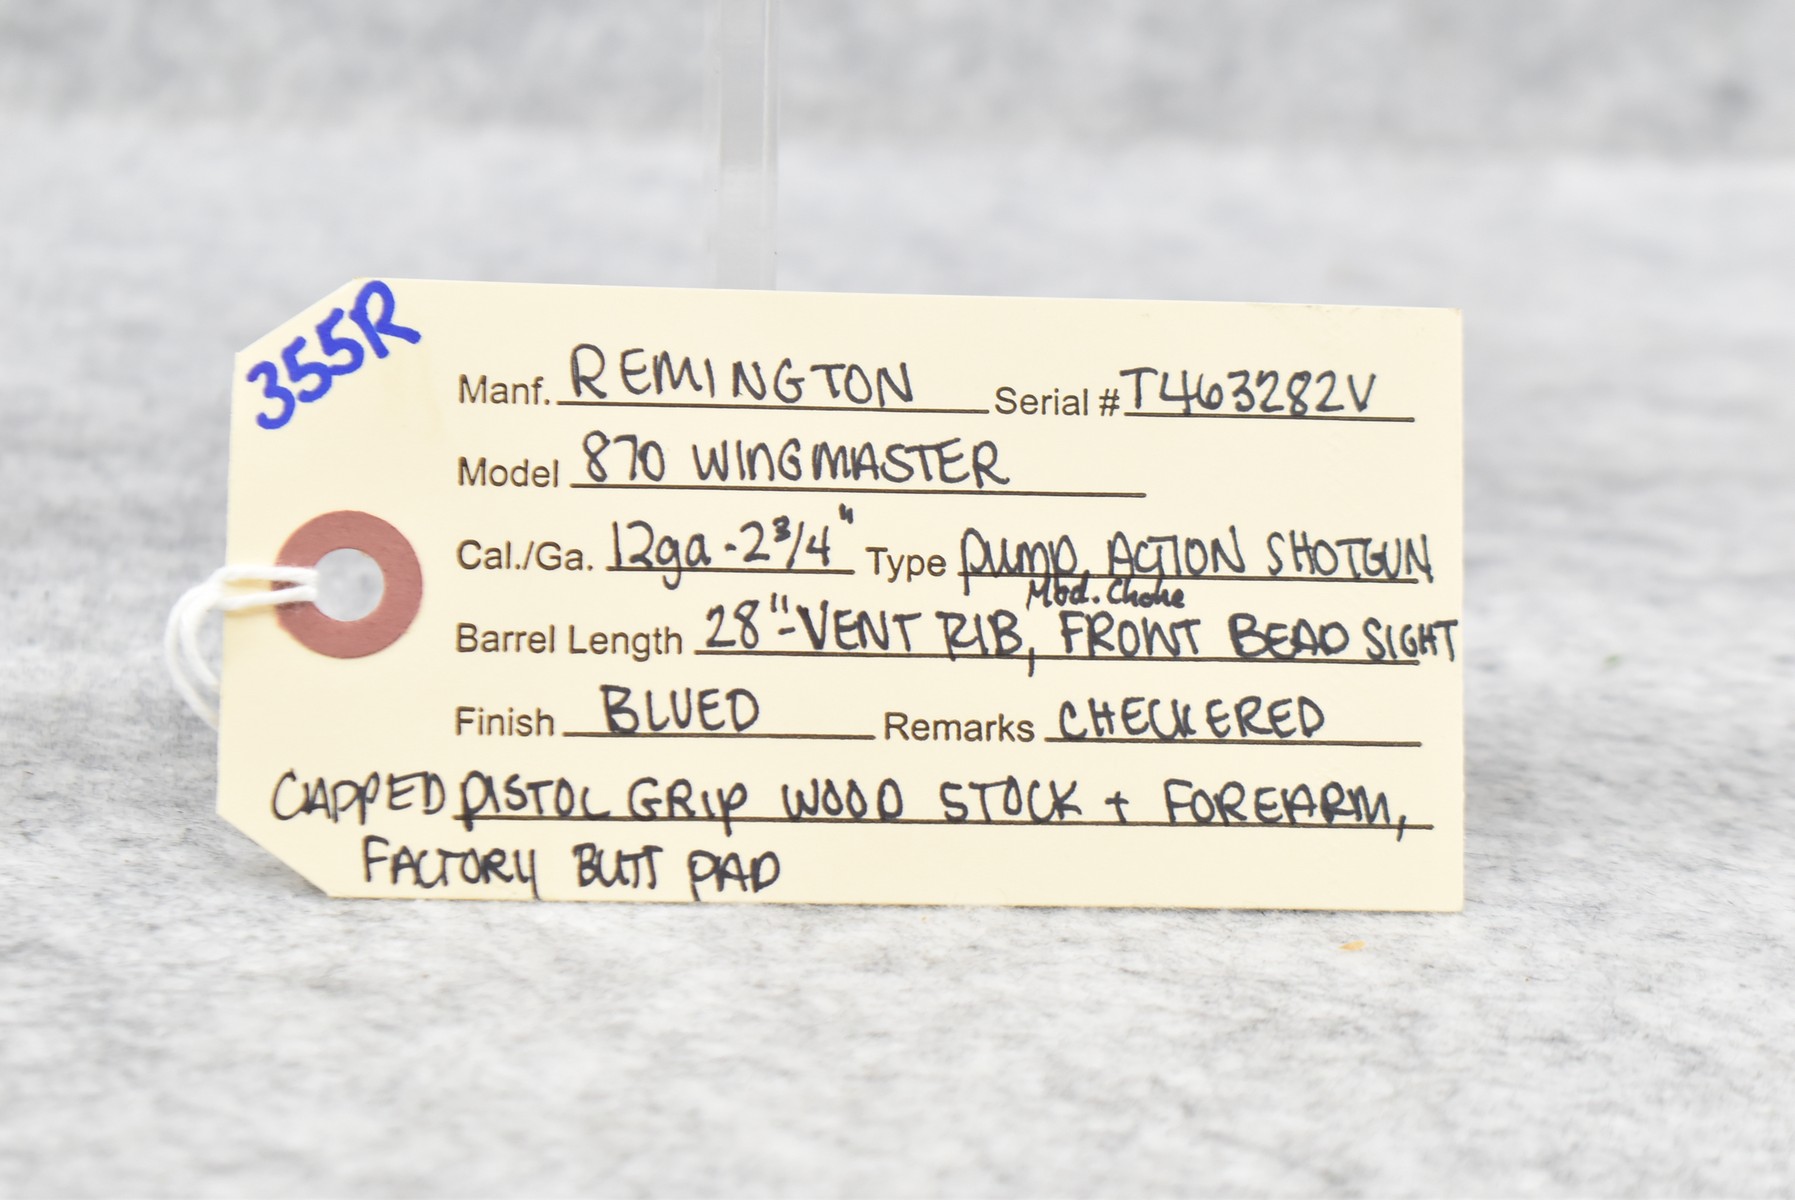 355R
Manf. REMINGTON Serial # T463282V
Model 870 WINGMASTER
Cal./Ga. 12ga - 2 3/4" Type PUMP ACTION SHOTGUN
Mod. Choke
Barrel Length 28"-VENT RIB, FRONT BEAD SIGHT
Finish BLUED Remarks CHECKERED
CAPPED PISTOL GRIP WOOD STOCK + FOREARM,
FACTORY BUTT PAD